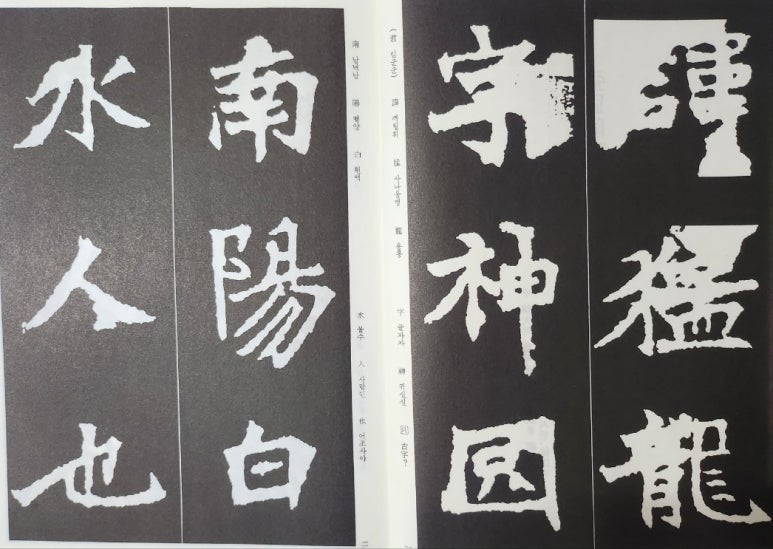 諱猛龍
字神㘥
(君 임금군) 諱 꺼릴휘 猛 사나울맹 龍 용룡 字 글자자 神 귀신신 古字?
南陽白
水人也
南 남녘남 陽 볕양 白 흰백 水 물수 人 사람인 也 어조사야